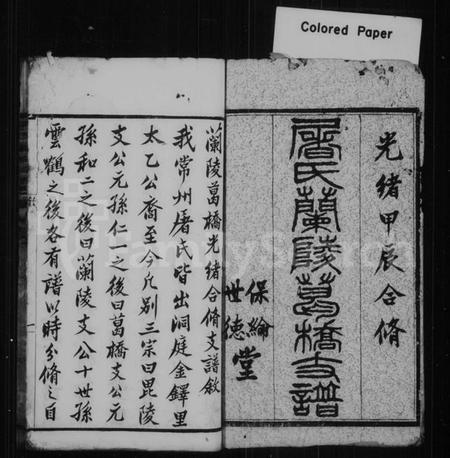 Colored Paper
光緒甲辰合脩
屠氏蘭陵葛橋支譜
保綸
世德堂
蘭陵葛橋光緒合脩支譜敘
我常州屠氏皆出洞庭金鐸里
太乙公裔至今凡別三宗曰毘陵
支公元孫仁一之後曰葛橋支公元
孫和二之後曰蘭陵支公十世孫
雲鶴之後各有譜以時分脩之自
FamilySearch